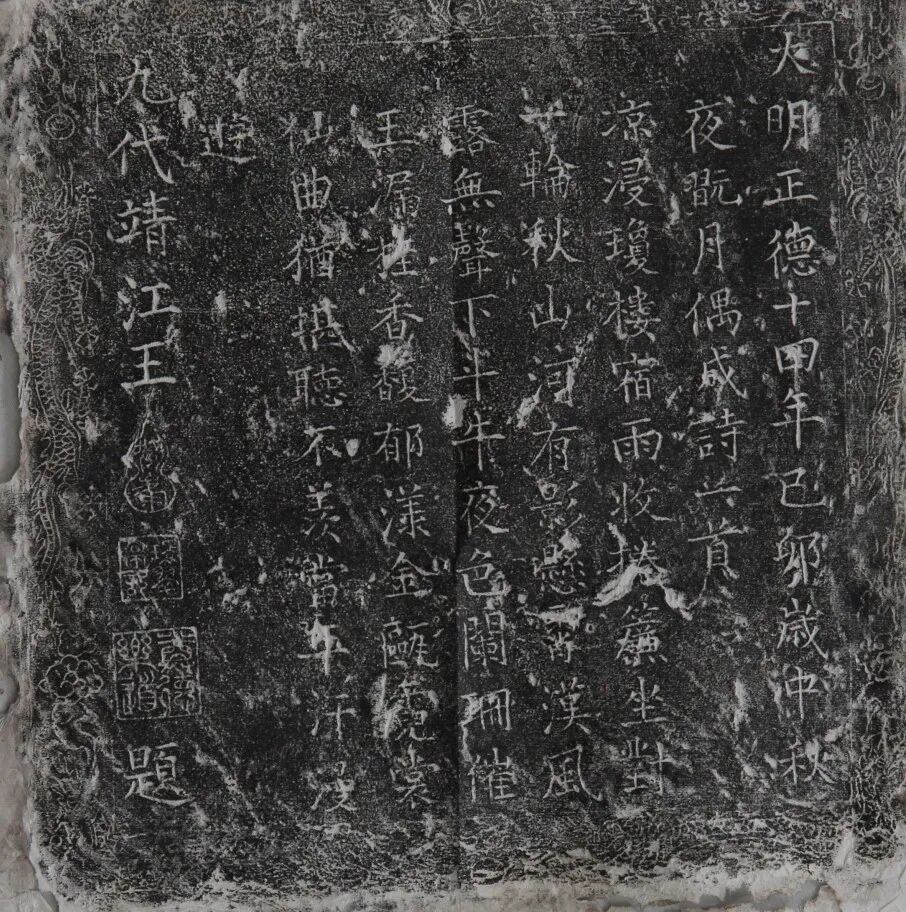 大明正德十四年己卯歲仲秋
夜翫月偶成詩六首
凉浸瓊樓宿雨收捲簾坐對
一輪秋山河有影懸霄漢風
露無聲下斗牛夜色闌珊催
玉漏桂香馥郁漾金甌霓裳
仙曲猶堪聽不羨當年汗漫
遊
九代靖江王
題